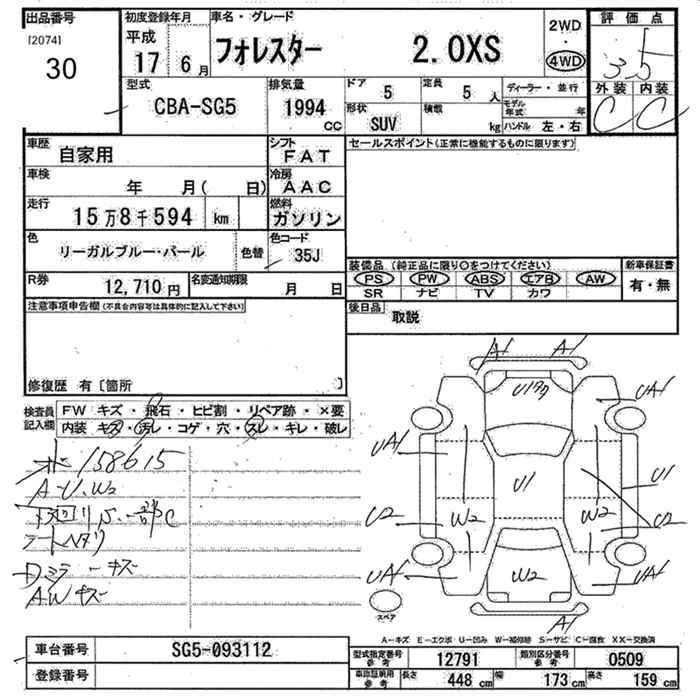 出品番号 初度登録年月 車名・グレード 2WD 評価点
[2074] 平成 ・
30 17 6月 フォレスター 2.0XS 4WD 3.5
型式 排気量 ドア 5 定員 5人 ディーラー・並行 外装 内装
CBA-SG5 1994 cc 形状 SUV 積載 kg モデル年式 年 C C
ハンドル 左・右
車歴 自家用 シフト FAT セールスポイント(正常に機能するものに限ります)
車検 年 月( 日) 冷房 AAC
走行 15万8千594 km 燃料 ガソリン
色 リーガルブルー・パール 色替 色コード 35J
装備品(純正品に限り○をつけてください) 新車保証書
R券 12,710円 名変通知期限 月 日 PS PW ABS エアB AW 有・無
SR ナビ TV カワ
注意事項申告欄(不具合内容等は具体的に記入して下さい) 後日品 取説
修復歴 有〔箇所 〕
検査員記入欄 FW キズ・飛石・ヒビ割・リペア跡・×要
内装 キズ・汚レ・コゲ・穴・スレ・キレ・破レ
158615
A-U.W2
AWキズ
A1 A1
UA1 UA1
UA1 U1 U1
U2 W2 W2 U2
UA1 W2 UA1
スペア A1
A-キズ E-エクボ U-凹み W-補修跡 S-サビ C-腐食 XX-交換済
車台番号 SG5-093112 型式指定番号 参考 12791 類別区分番号 参考 0509
登録番号 車両証明用 参考 長さ 448cm 幅 173cm 高さ 159cm